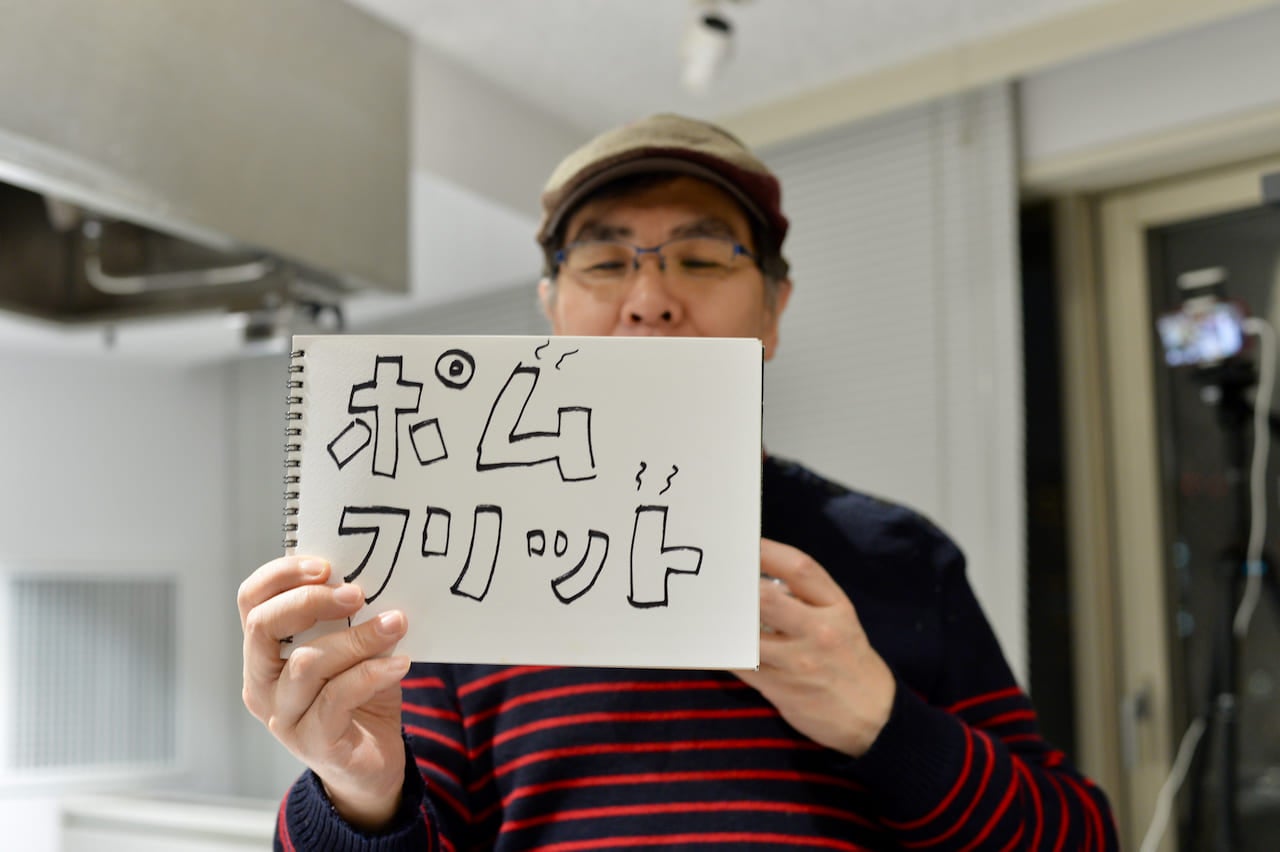 ポム
フリット